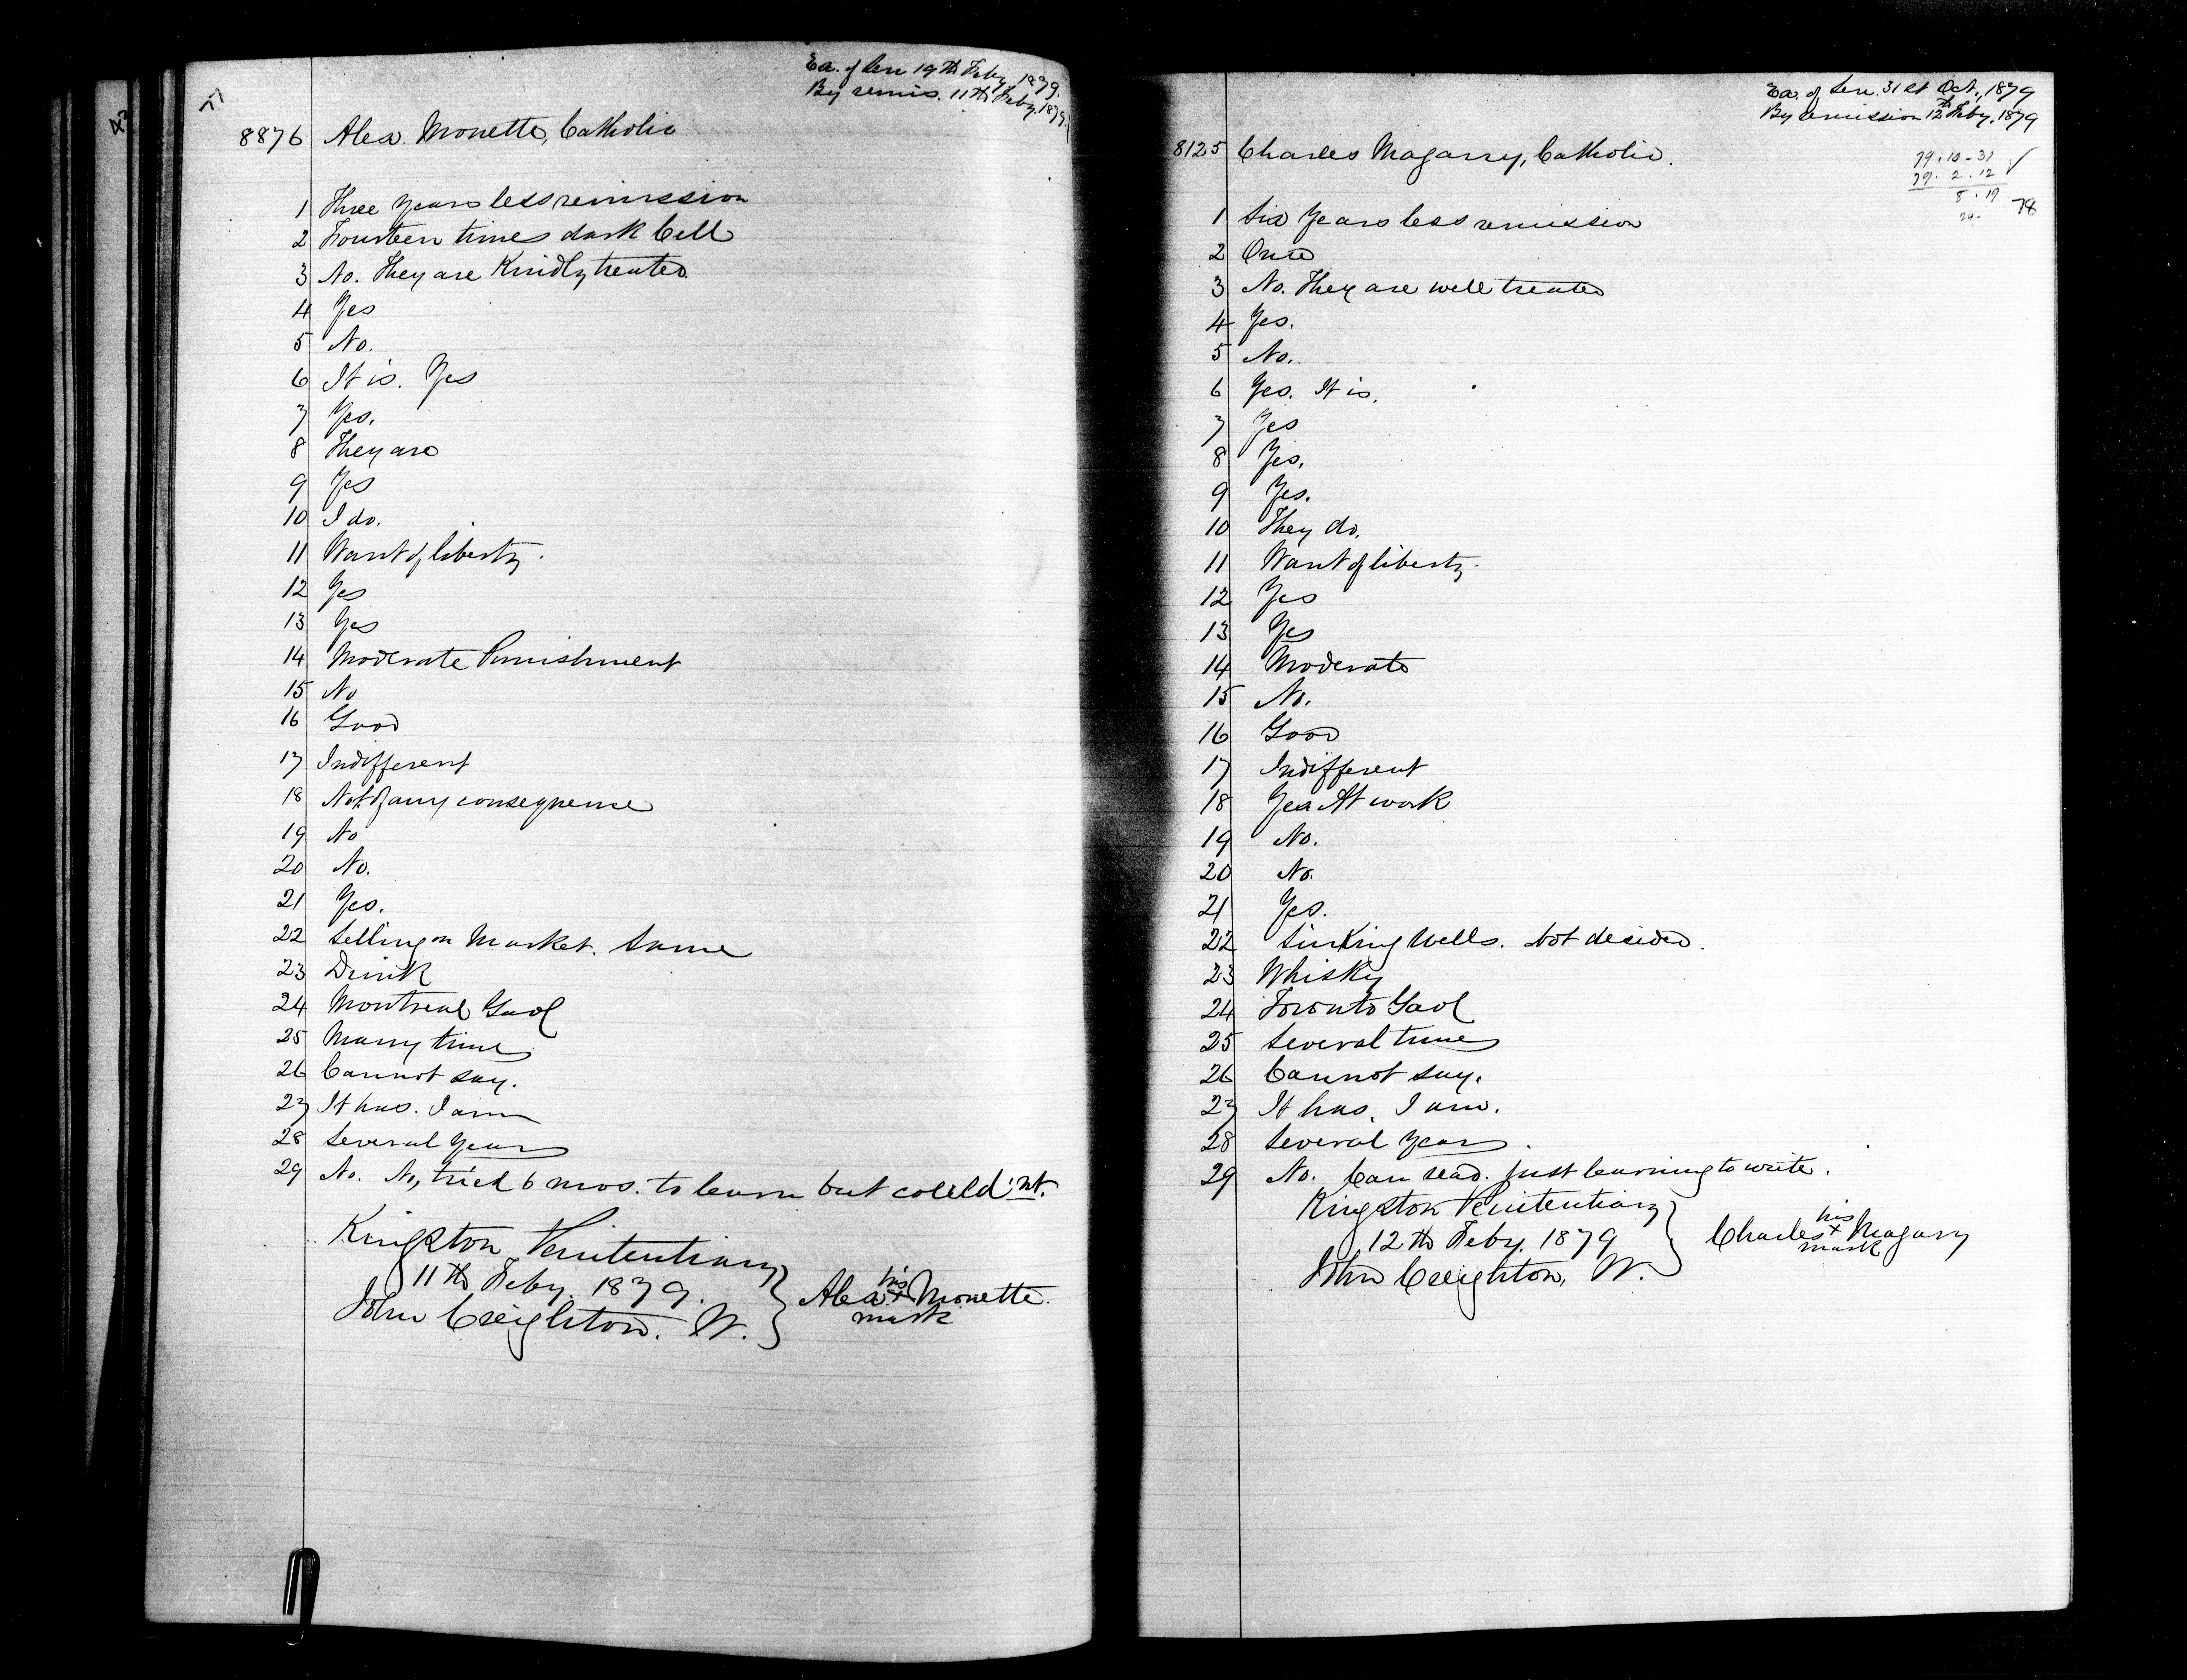 77
Ex. of Sen 19th Feby 1879.
By remis. 11th Feby. 1879.
8876 Alex. Monette, Catholic
1 Three years less remission
2 Fourteen times dark Cell
3 No. They are Kindly treated
4 Yes
5 No.
6 It is. Yes
7 Yes.
8 They are
9 Yes
10 I do.
11 Want of liberty.
12 Yes
13 Yes
14 Moderate Punishment
15 No
16 Good
17 Indifferent
18 Not of any consequence
19 No
20 No.
21 Yes.
22 Selling on Market. Same
23 Drink
24 Montreal Gaol
25 Many times
26 Cannot say.
27 It has. I am
28 Several years
29 No. No, tried 6 mos. to learn but could'nt.
Kingston Penitentiary
11th Feby. 1879.
John Creighton. W.
his
Alex. + Monette.
mark
Ex. of Sen. 31st Oct., 1879
By remission 12th Feby. 1879
8125 Charles Magarry, Catholic.
79.10-31
79. 2. 12
8. 19
24.
78
1 Six years less remission
2 Once
3 No. They are well treated
4 Yes.
5 No.
6 Yes. It is.
7 Yes
8 Yes.
9 Yes.
10 They do.
11 Want of liberty.
12 Yes
13 Yes
14 Moderate
15 No.
16 Good
17 Indifferent
18 Yes At work
19 No.
20 No.
21 Yes.
22 Sinking Wells. Not decided.
23 Whisky
24 Toronto Gaol
25 Several times
26 Cannot say.
27 It has. I am.
28 Several years.
29 No. Can read. Just learning to write.
Kingston Penitentiary
12th Feby. 1879
John Creighton, W.
his
Charles + Magarry
mark